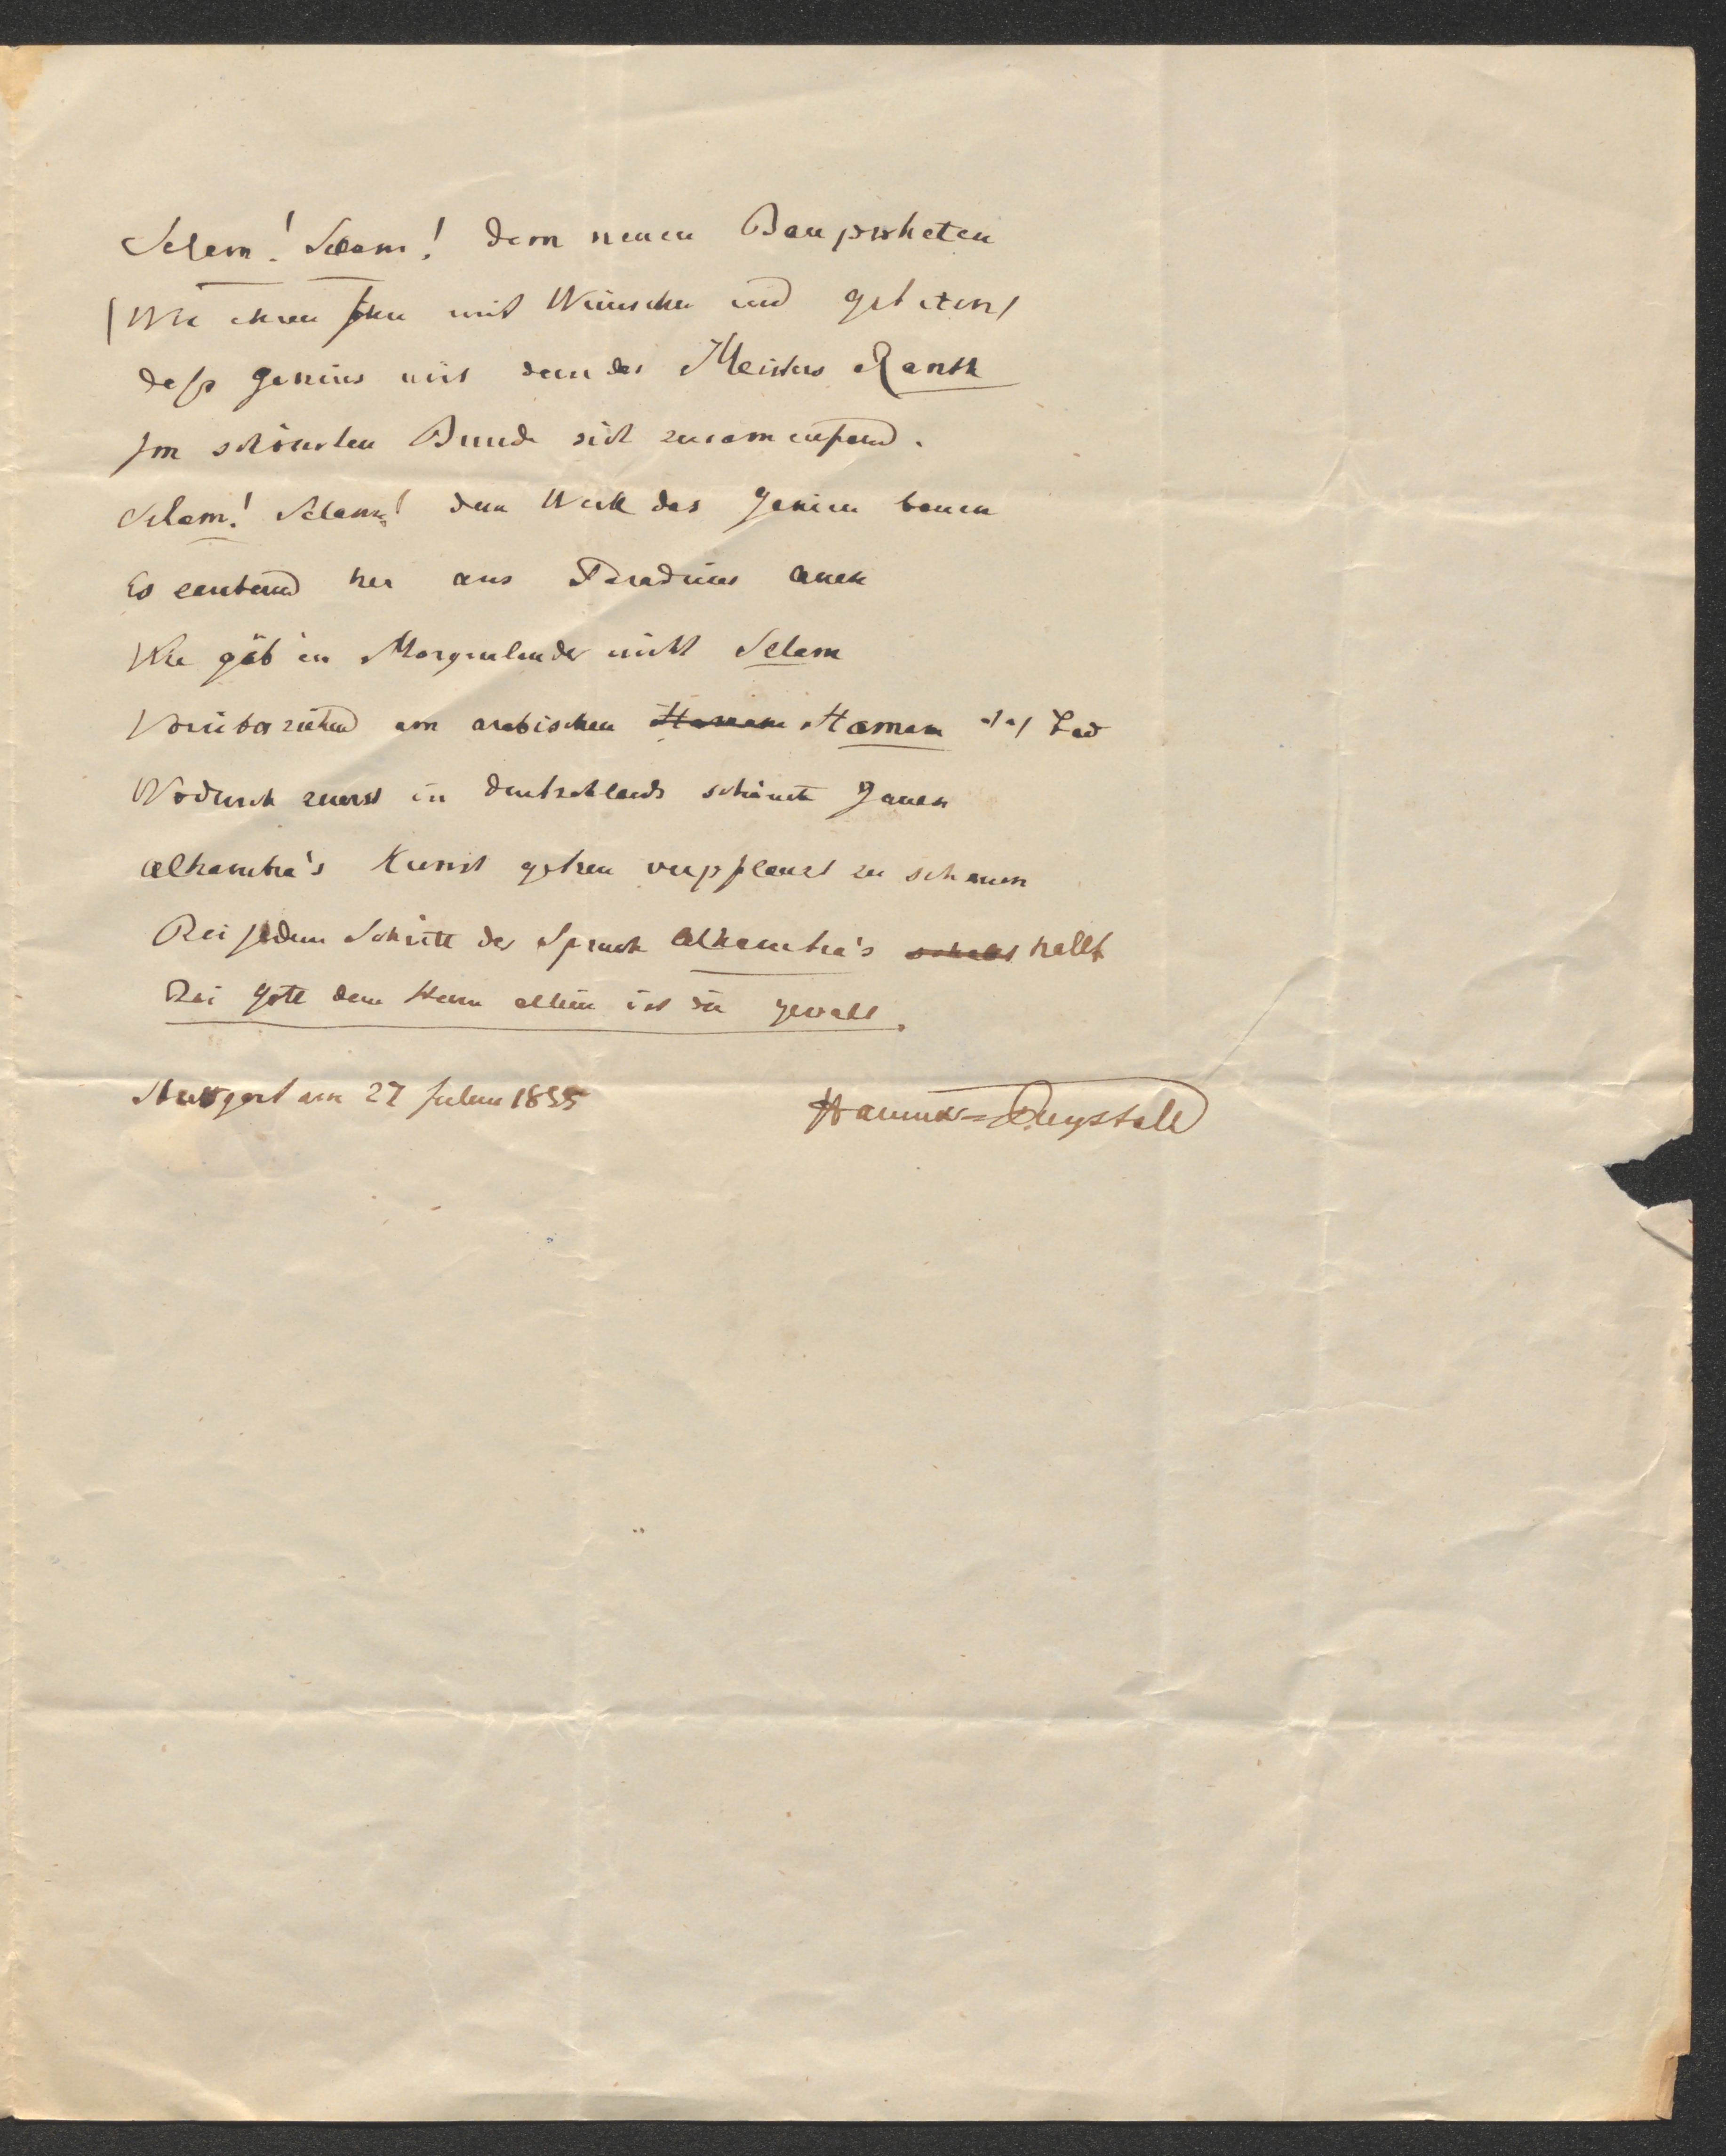 Selam! Selam! dem neuen Baupropheten
(Wir ehren ihn mit Wünschen und gebeten)
daß genius mit dem des Meisters Zanth
Im schönsten Bunde sich zusammenfand.
Selam! Selam! dem Werk das Genien bauen
Es her aus Paradieses auen
Wer gäb im Morgenlande nicht Selam
Vorüberziehend am arabischen Hamam Hamam *) Bad
Wodurch zuerst in deutschlands schönste gauen
alhambra's Kunst getreu verpflanzt zu schauen
Bei jedem Schritt der Spruch alhambra's schallt hallt
Bei gott dem Herrn allein ist die gewalt.
Stuttgart am 27 1855
Hammer=Purgstall